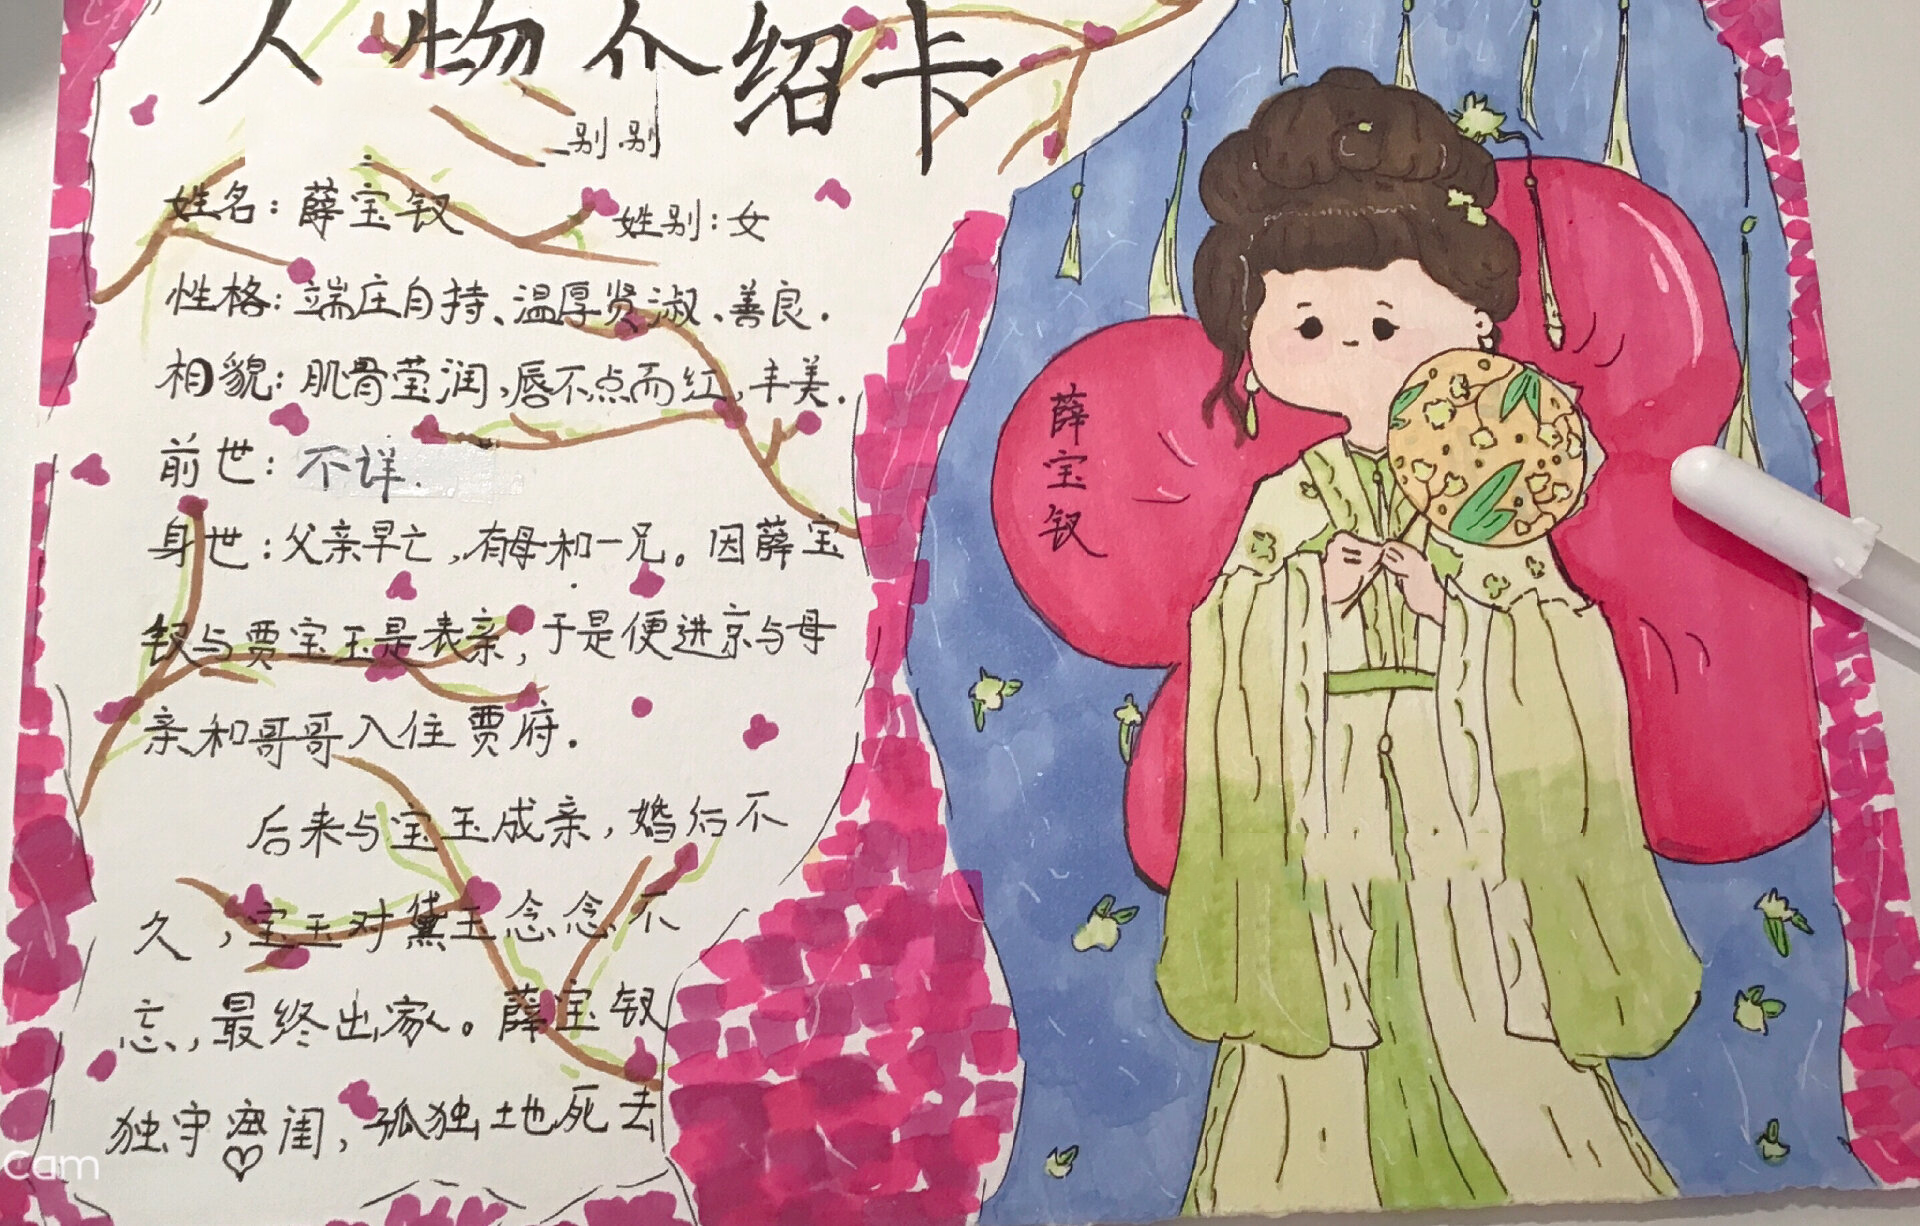 人物介绍卡
别别
姓名：薛宝钗 姓别：女
性格：端庄自持、温厚贤淑、善良.
相貌：肌骨莹润，唇不点而红，丰美.
前世：不详.
身世：父亲早亡，有母和一兄。因薛宝
钗与贾宝玉是表亲，于是便进京与母
亲和哥哥入住贾府.
后来与宝玉成亲，婚后不
久，宝玉对黛玉念念不
忘，最终出家。薛宝钗
独守闺，孤独地死去
薛宝钗
Cam